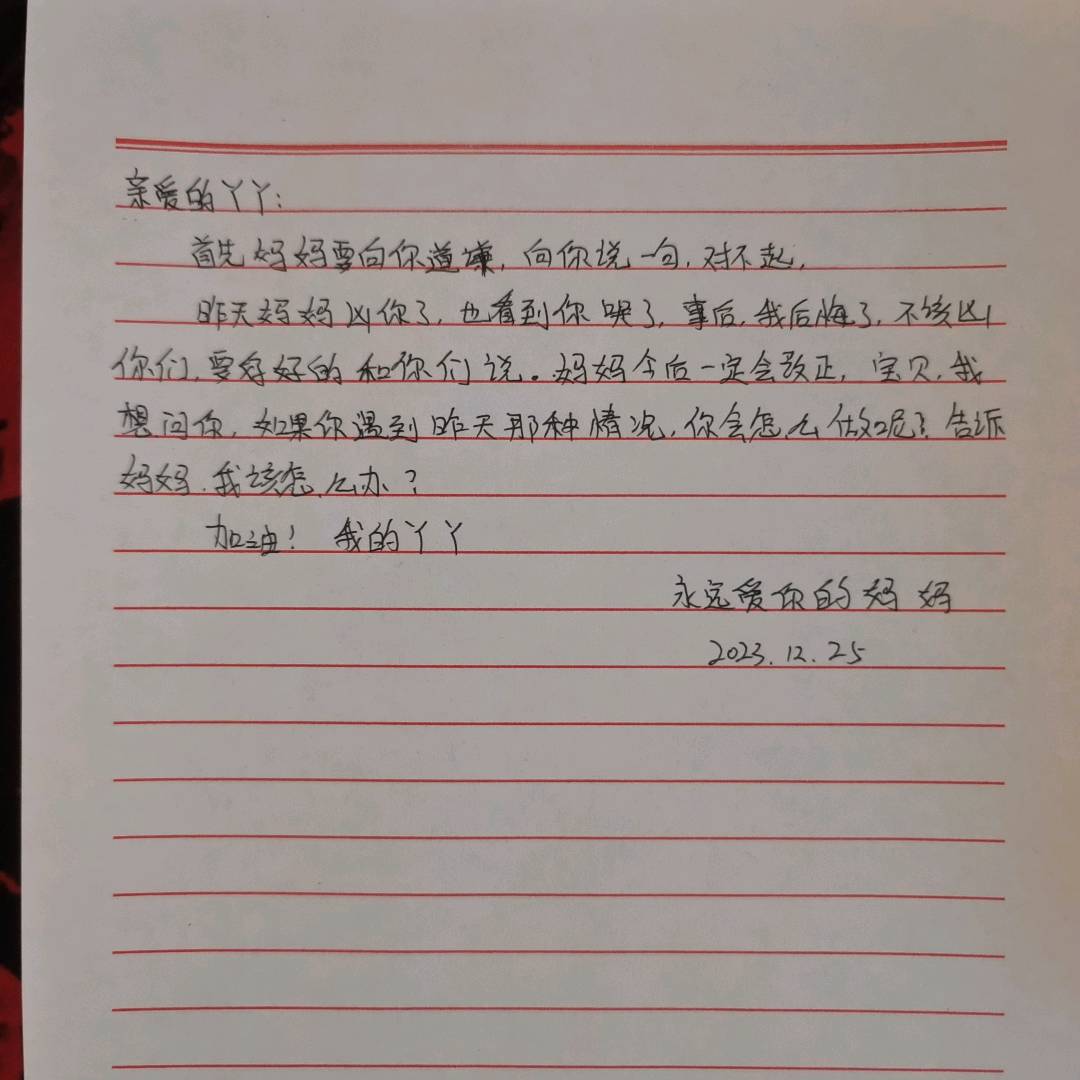 亲爱的丫丫:
首先妈妈要向你道歉,向你说一句,对不起,
昨天妈妈凶你了,也看到你哭了,事后,我后悔了,不该凶
你们,要好好的和你们说。妈妈今后一定会改正,宝贝,我
想问你,如果你遇到昨天那种情况,你会怎么做呢?告诉
妈妈.我该怎么办?
加油!我的丫丫
永远爱你的妈妈
2023.12.25